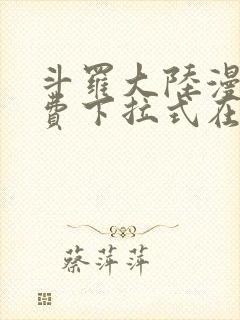 斗羅大陸漫
費下拉式在
蔡萍萍